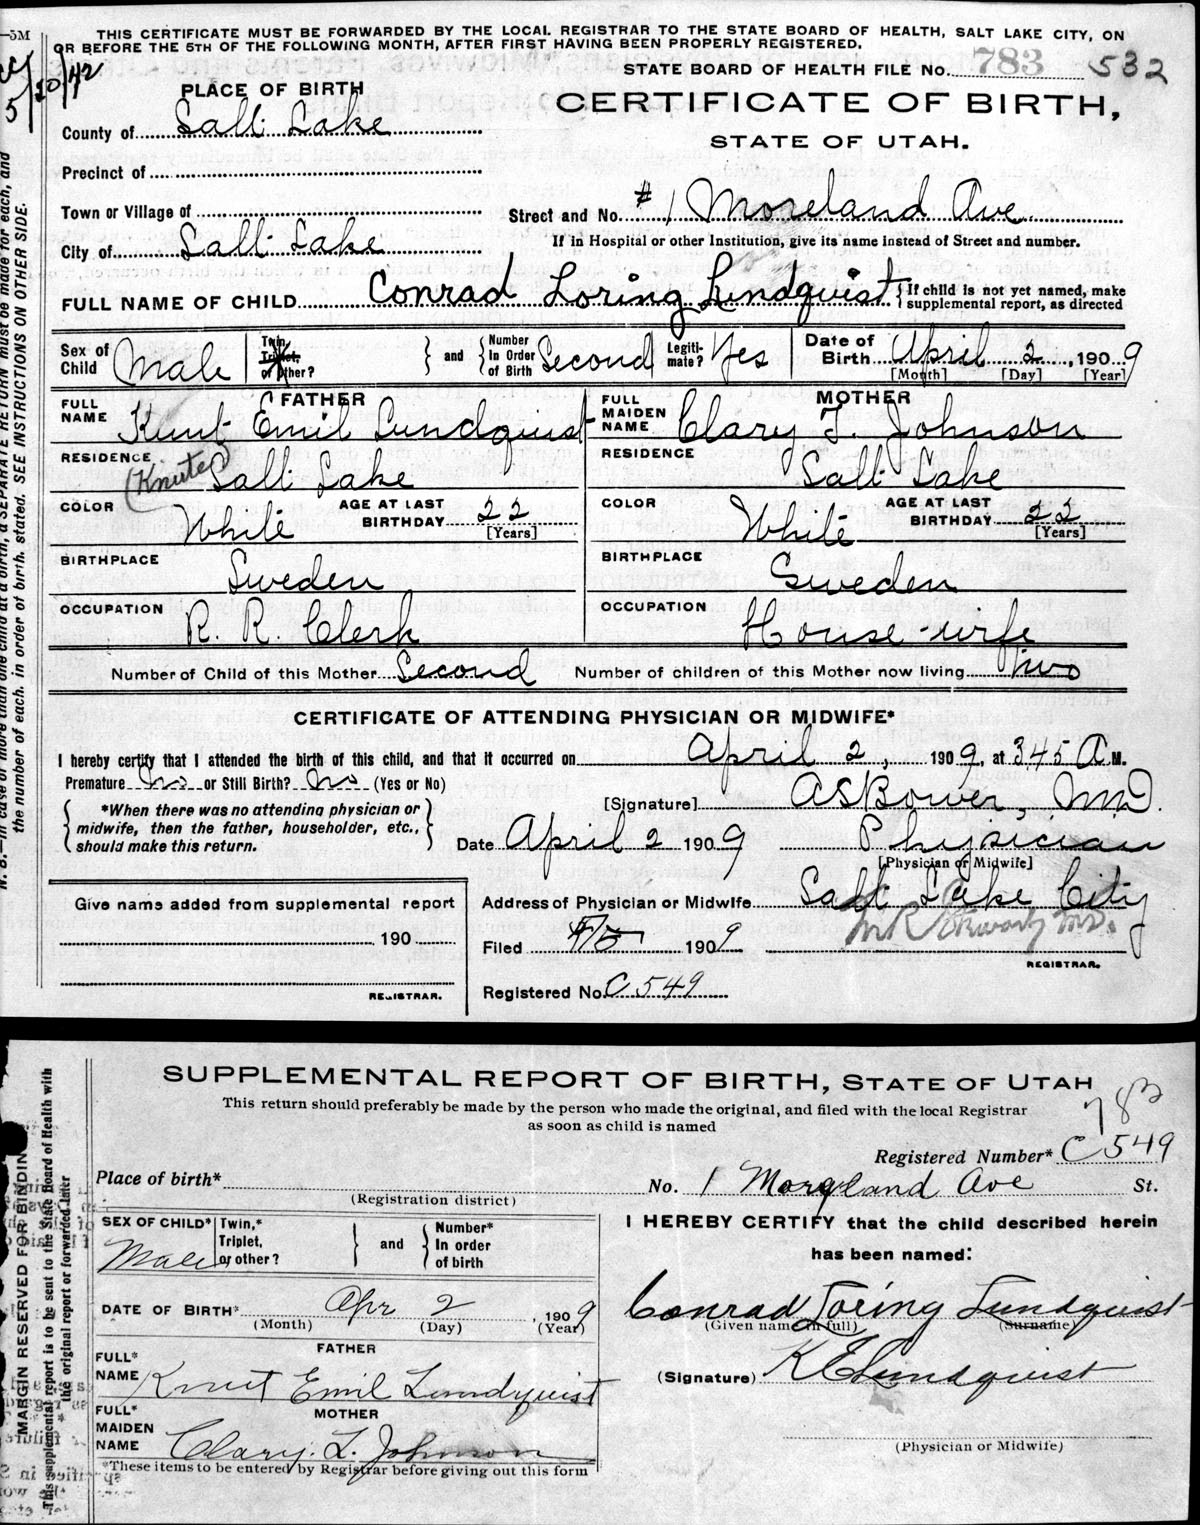 —5M
THIS CERTIFICATE MUST BE FORWARDED BY THE LOCAL REGISTRAR TO THE STATE BOARD OF HEALTH, SALT LAKE CITY, ON
OR BEFORE THE 5TH OF THE FOLLOWING MONTH, AFTER FIRST HAVING BEEN PROPERLY REGISTERED.
STATE BOARD OF HEALTH FILE No. 783 532
CERTIFICATE OF BIRTH,
STATE OF UTAH.
PLACE OF BIRTH
County of Salt Lake
Precinct of
Town or Village of
City of Salt Lake
Street and No. #1 Moreland Ave
If in Hospital or other Institution, give its name instead of Street and number.
FULL NAME OF CHILD Conrad Loring Lundquist { If child is not yet named, make supplemental report, as directed
Sex of Child Male
Twin, Triplet, or other? } and { Number In Order of Birth Second
Legitimate? Yes
Date of Birth April 2, 1909
[Month] [Day] [Year]
FATHER
FULL NAME Knut Emil Lundquist
(Knute)
RESIDENCE Salt Lake
COLOR White AGE AT LAST BIRTHDAY 22 [Years]
BIRTHPLACE Sweden
OCCUPATION R. R. Clerk
MOTHER
FULL MAIDEN NAME Clary T. Johnson
RESIDENCE Salt Lake
COLOR White AGE AT LAST BIRTHDAY 22 [Years]
BIRTHPLACE Sweden
OCCUPATION House-wife
Number of Child of this Mother Second Number of children of this Mother now living Two
CERTIFICATE OF ATTENDING PHYSICIAN OR MIDWIFE*
I hereby certify that I attended the birth of this child, and that it occurred on April 2, 1909, at 345 A M.
Premature No or Still Birth? No (Yes or No)
{ *When there was no attending physician or midwife, then the father, householder, etc., should make this return. }
[Signature] ASBower, MD.
Date April 2 1909 Physician
[Physician or Midwife]
Address of Physician or Midwife Salt Lake City
Filed 4/5 1909
REGISTRAR.
Registered No. C549
Give name added from supplemental report
, 190
REGISTRAR.
N. B.—In case of more than one child at a birth, a SEPARATE RETURN must be made for each, and
the number of each, in order of birth, stated. SEE INSTRUCTIONS ON OTHER SIDE.
SUPPLEMENTAL REPORT OF BIRTH, STATE OF UTAH
This return should preferably be made by the person who made the original, and filed with the local Registrar
as soon as child is named
783
Registered Number* C549
Place of birth* No. 1 Moreland Ave St.
(Registration district)
SEX OF CHILD* Male
Twin,* Triplet, or other? } and { Number* In order of birth
DATE OF BIRTH* Apr 2, 1909
(Month) (Day) (Year)
FATHER
FULL* NAME Knut Emil Lundquist
MOTHER
FULL* MAIDEN NAME Clary. L. Johnson
*These items to be entered by Registrar before giving out this form
I HEREBY CERTIFY that the child described herein
has been named:
Conrad Loring Lundquist
(Given name in full) (Surname)
(Signature) K E Lundquist
(Physician or Midwife)
MARGIN RESERVED FOR BINDING
This supplemental report is to be sent to the State Board of Health with
the original report or forwarded later